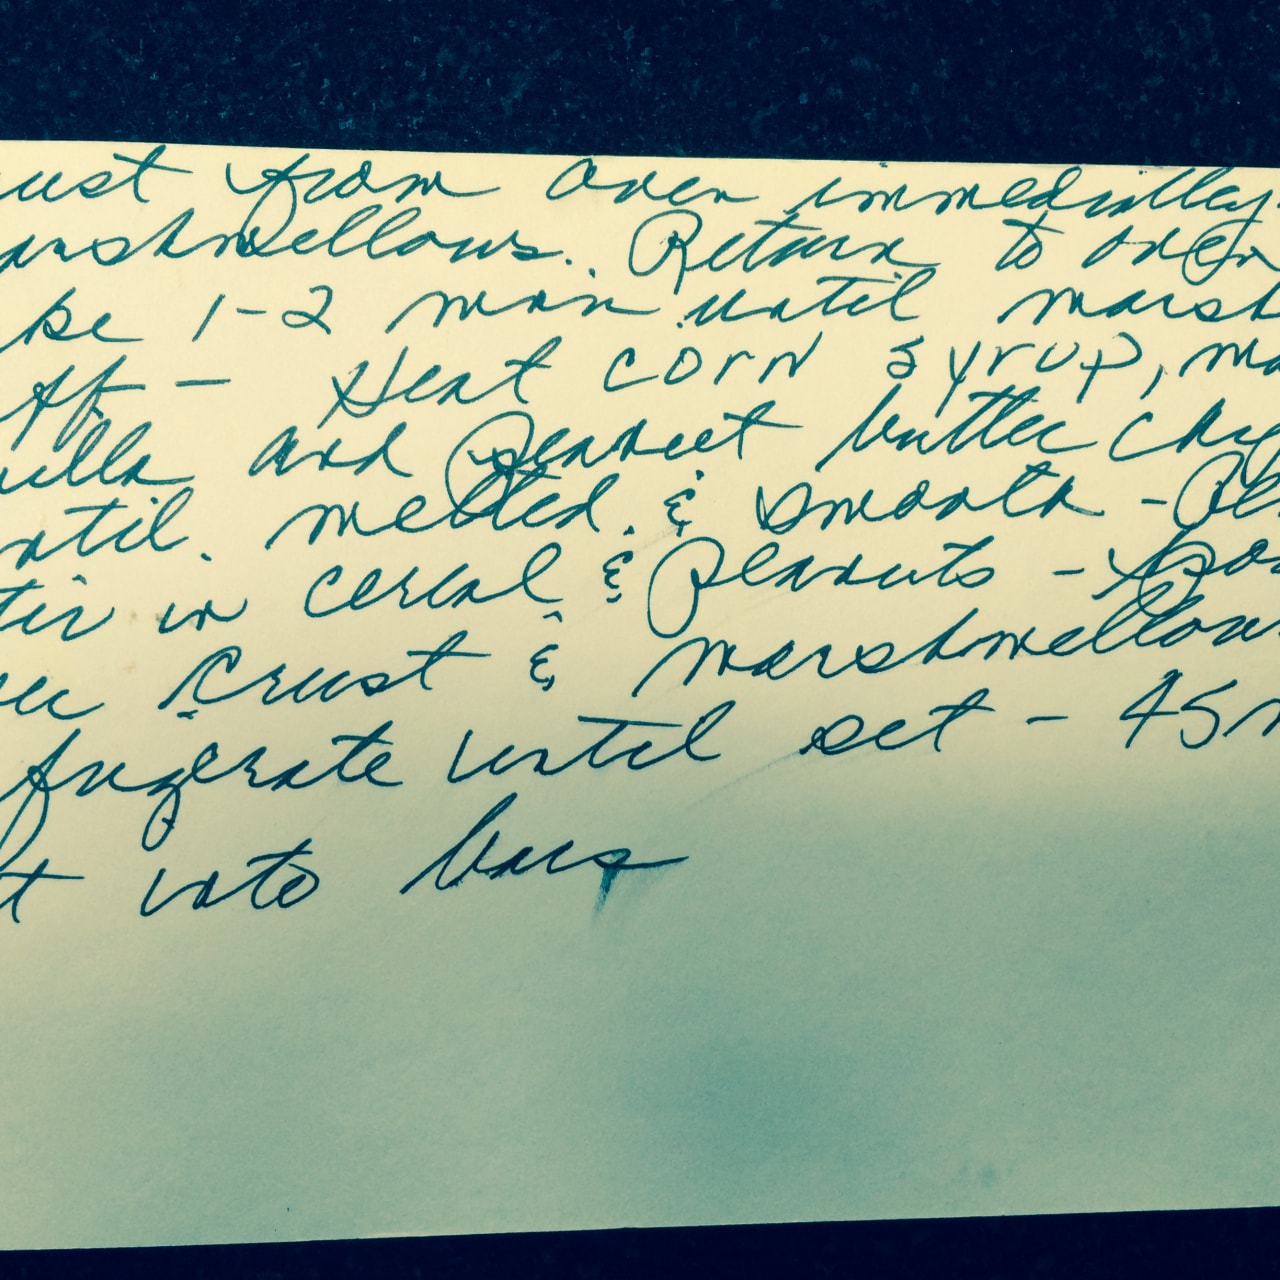 ust from oven immediatley.
arshmellows. Return to oven
ke 1-2 min until marsh
ff - Heat corn syrup, ma
illa and peanut butter chip
ntil melted & smooth - Re
tir in cereal & peanuts - spo
ver crust & marshmellow
frigerate until set - 45 m
t into bars